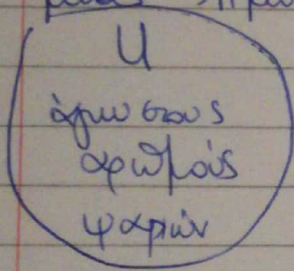 U
άγνωστους
αριθμούς
ψαριών